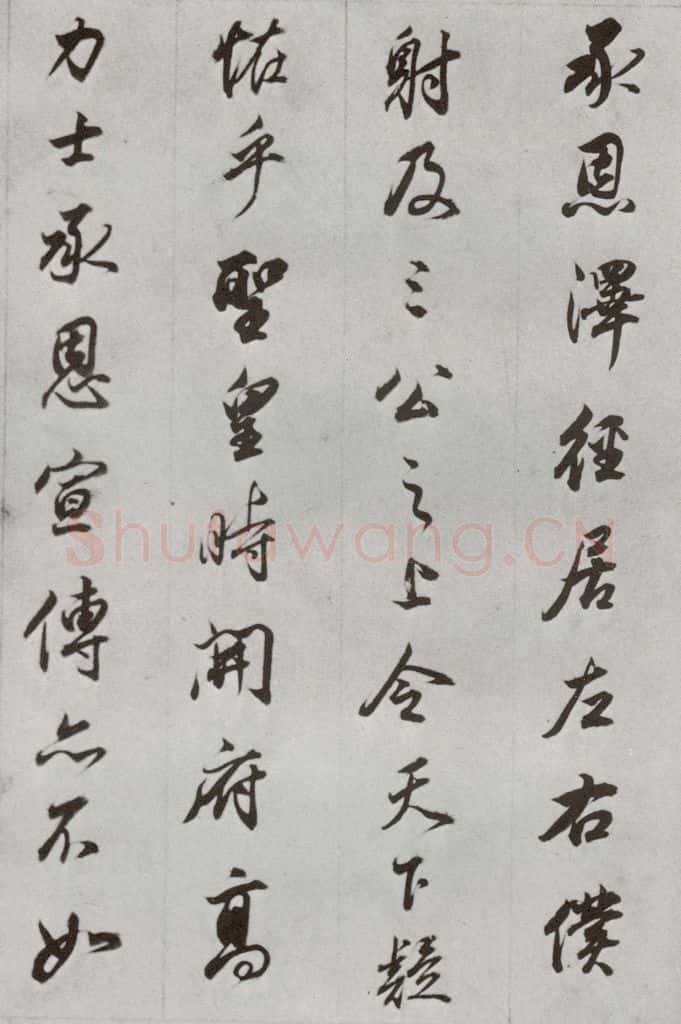 承恩澤徑居左右僕
射及三公之上今天下疑
恠乎聖皇時開府高
力士承恩宣傳亦不如
Shufawang.CN